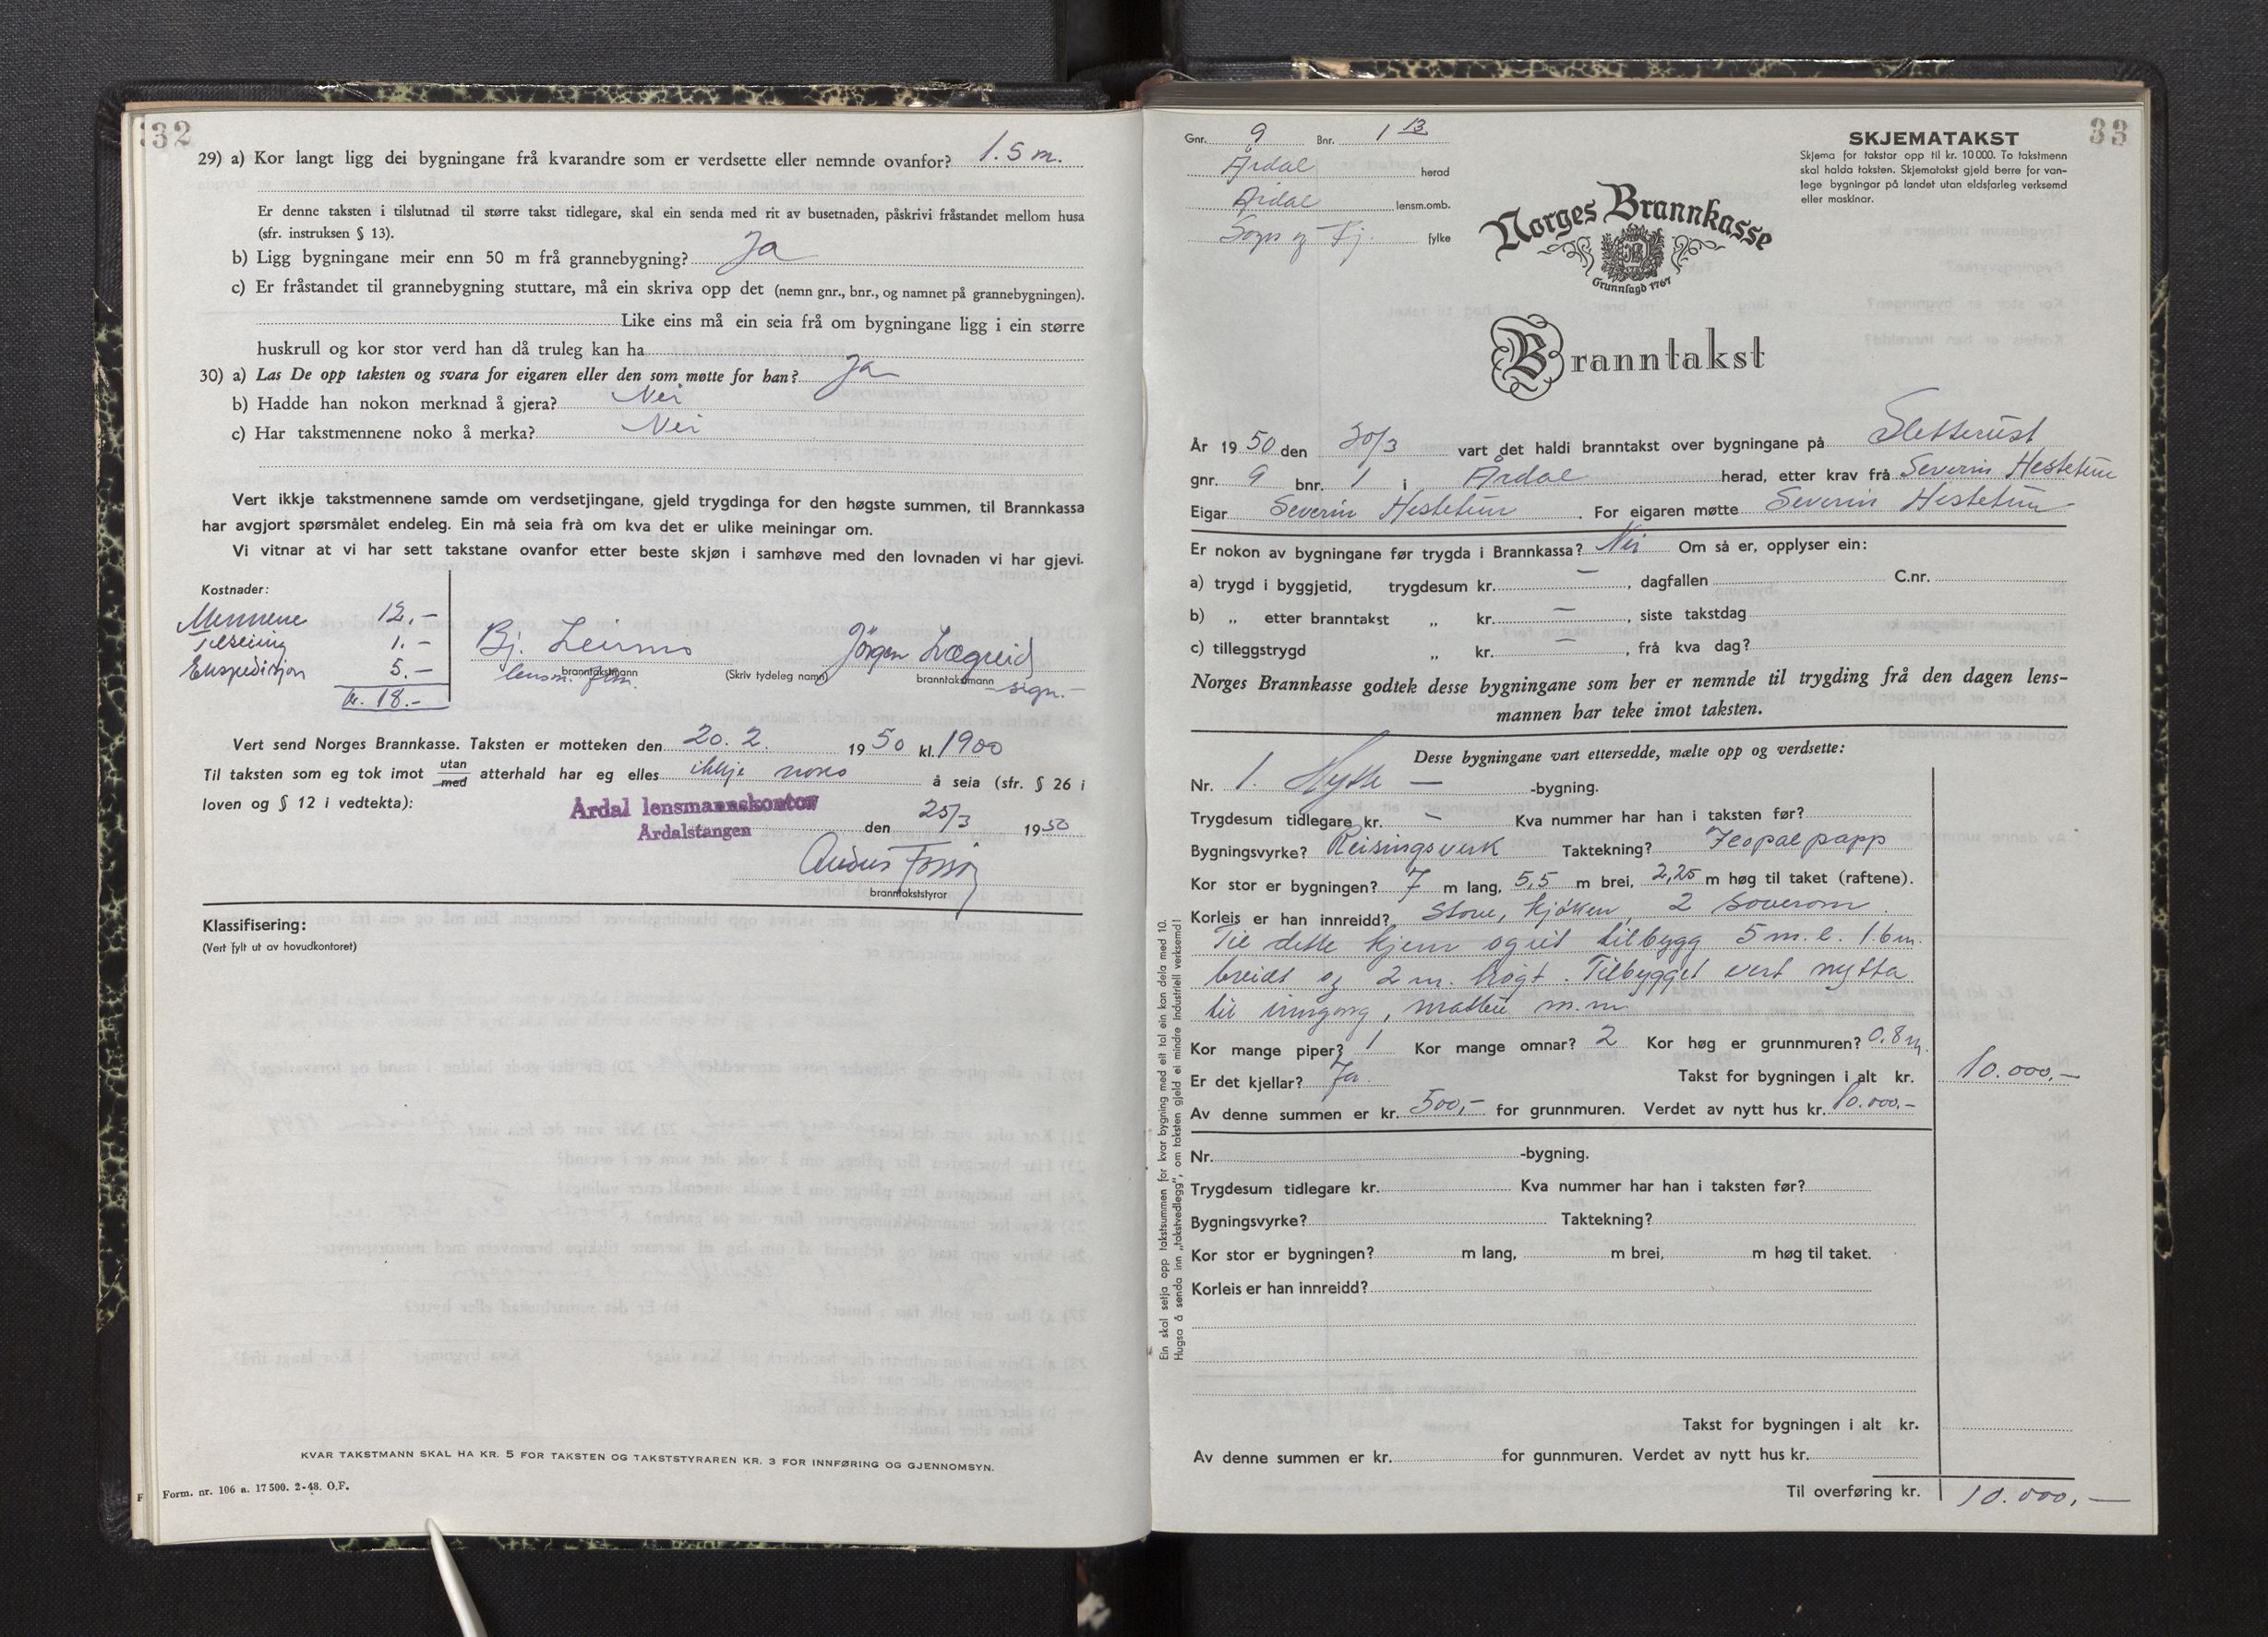 32
29) a) Kor langt ligg dei bygningane frå kvarandre som er verdsette eller nemnde ovanfor? 1.5 m.
Er denne taksten i tilslutnad til større takst tidlegare, skal ein senda med rit av busetnaden, påskrivi fråstandet mellom husa
(sfr. instruksen § 13).
b) Ligg bygningane meir enn 50 m frå grannebygning? Ja
c) Er fråstandet til grannebygning stuttare, må ein skriva opp det (nemn gnr., bnr., og namnet på grannebygningen).
Like eins må ein seia frå om bygningane ligg i ein større
huskrull og kor stor verd han då truleg kan ha
30) a) Las De opp taksten og svara for eigaren eller den som møtte for han? Ja
b) Hadde han nokon merknad å gjera? Nei
c) Har takstmennene noko å merka? Nei
Vert ikkje takstmennene samde om verdsetjingane, gjeld trygdinga for den høgste summen, til Brannkassa
har avgjort spørsmålet endeleg. Ein må seia frå om kva det er ulike meiningar om.
Vi vitnar at vi har sett takstane ovanfor etter beste skjøn i samhøve med den lovnaden vi har gjevi.
Kostnader:
Mennene 12.–
Tilseiing 1.–
Ekspedisjon 5.–
kr. 18.–
Bj. Leirmo Jörgen Lægreid
branntakstmann (Skriv tydeleg namn) branntakstmann
lensm. flm. – sign. –
Vert send Norges Brannkasse. Taksten er motteken den 20. 2. 1950 kl. 1900
Til taksten som eg tok imot utan/med atterhald har eg elles ikkje noko å seia (sfr. § 26 i
loven og § 12 i vedtekta):
Årdal lensmannskontor
Årdalstangen den 25/3 1950
branntakststyrar
Klassifisering:
(Vert fylt ut av hovudkontoret)
KVAR TAKSTMANN SKAL HA KR. 5 FOR TAKSTEN OG TAKSTSTYRAREN KR. 3 FOR INNFØRING OG GJENNOMSYN.
Form. nr. 106 a. 17 500. 2-48. O.F.
33
Gnr. 9 Bnr. 1 13
Årdal herad
Årdal lensm.omb.
Sogn og Fj. fylke
SKJEMATAKST
Skjema for takstar opp til kr. 10 000. To takstmenn
skal halda taksten. Skjematakst gjeld berre for van-
lege bygningar på landet utan eldsfarleg verksemd
eller maskinar.
Norges Brannkasse
Grunnlagd 1767
Branntakst
År 1950 den 30/3 vart det haldi branntakst over bygningane på Sletterust
gnr. 9 bnr. 1 i Årdal herad, etter krav frå Severin Hestetun
Eigar Severin Hestetun. For eigaren møtte Severin Hestetun
Er nokon av bygningane før trygda i Brannkassa? Nei Om så er, opplyser ein:
a) trygd i byggjetid, trygdesum kr. –, dagfallen C.nr.
b) „ etter branntakst „ kr. –, siste takstdag
c) tilleggstrygd „ kr. –, frå kva dag?
Norges Brannkasse godtek desse bygningane som her er nemnde til trygding frå den dagen lens-
mannen har teke imot taksten.
Desse bygningane vart ettersedde, mælte opp og verdsette:
Nr. 1. Hytte – -bygning.
Trygdesum tidlegare kr. – Kva nummer har han i taksten før?
Bygningsvyrke? Reisingsverk Taktekning? Icopalpapp
Kor stor er bygningen? 7 m lang, 5,5 m brei, 2,25 m høg til taket (raftene).
Korleis er han innreidd? Stove, kjöken, 2 soverom.
Til dette kjem ogeit tilbygg 5 m. l. 1.6 m.
breidt og 2 m. högt. Tilbygget vert nytta
til inngong, matbu m.m
Kor mange piper? 1 Kor mange omnar? 2 Kor høg er grunnmuren? 0.8 m.
Er det kjellar? Ja. Takst for bygningen i alt kr. 10.000,–
Av denne summen er kr. 500,– for grunnmuren. Verdet av nytt hus kr. 10.000,–
Nr. -bygning.
Trygdesum tidlegare kr. Kva nummer har han i taksten før?
Bygningsvyrke? Taktekning?
Kor stor er bygningen? m lang, m brei, m høg til taket.
Korleis er han innreidd?
Takst for bygningen i alt kr.
Av denne summen er kr. for gunnmuren. Verdet av nytt hus kr.
Til overføring kr. 10.000,–
Ein skal setja opp takstsummen for kvar bygning med eit tal ein kan dela med 10.
Hugsa å senda inn „takstvedlegg", om taksten gjeld ei mindre industriell verksemd!